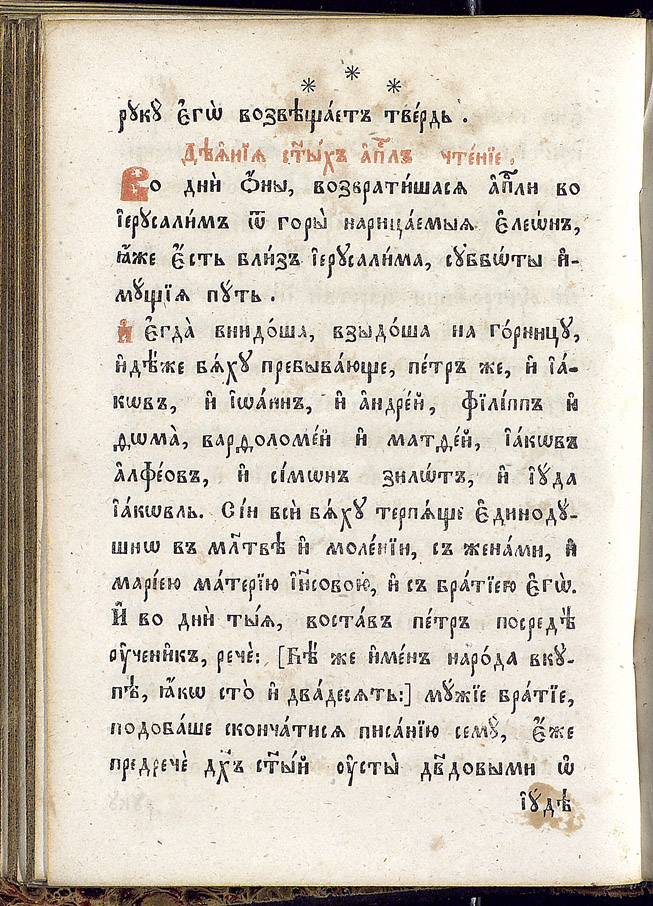 * * *
рукꙋ̀ є҆гѡ̀ возвѣща́етъ тве́рдь .
Дѣѧ̑нїѧ ст҃ы́хъ а҆п҃лъ чте́нїе,
Во дни̑ ѻ҆́ны, возврати́шасѧ а҆п҃ли во
і҆ерꙋсали́мъ ѿ горы̀ нарица́емыѧ є҆леѡ́нъ,
ꙗ҆́же є҆́сть бли́зъ і҆ерꙋсали́ма, сꙋббѡ́ты и҆-
мꙋщїѧ пꙋть .
И҆ є҆гда̀ внидо́ша, взыдо́ша на го́рницꙋ,
и҆дѣ́же бѧ́хꙋ пребыва́юще, пе́тръ же, и҆ і҆а́-
кѡвъ, и҆ і҆ѡа́ннъ, и҆ а҆ндре́й, фїлі́ппъ и҆
ѳѡма̀, варѳоломе́й и҆ матѳе́й, і҆а́кѡвъ
а҆лфе́овъ, и҆ сі́мѡнъ зилѡ́тъ, и҆ і҆ꙋ́да
і҆а́кѡвль. Сі́и всѝ бѧ́хꙋ терпѧ́ще є҆динодꙋ́-
шнѡ въ мл҃твѣ и҆ моле́нїи, съ жена́ми, и҆
марі́ею ма́терїю і҆и҃совою, и҆ съ бра́тїею є҆гѡ̀.
И҆ во дни̑ ты́ѧ, воста́въ пе́тръ посредѣ̀
ᲂу҆чени̑къ, речѐ: [Бѣ́ же и҆ме́нъ наро́да вкꙋ́-
пѣ, ꙗ҆́кѡ сто̀ и҆ два́десѧть:] мꙋ́жїе бра́тїе,
подоба́ше сконча́тисѧ писа́нїю семꙋ̀, є҆́же
предречѐ дх҃ъ ст҃ы́й ᲂу҆сты̀ дв҃довыми ѡ҆
і҆ꙋ́дѣ